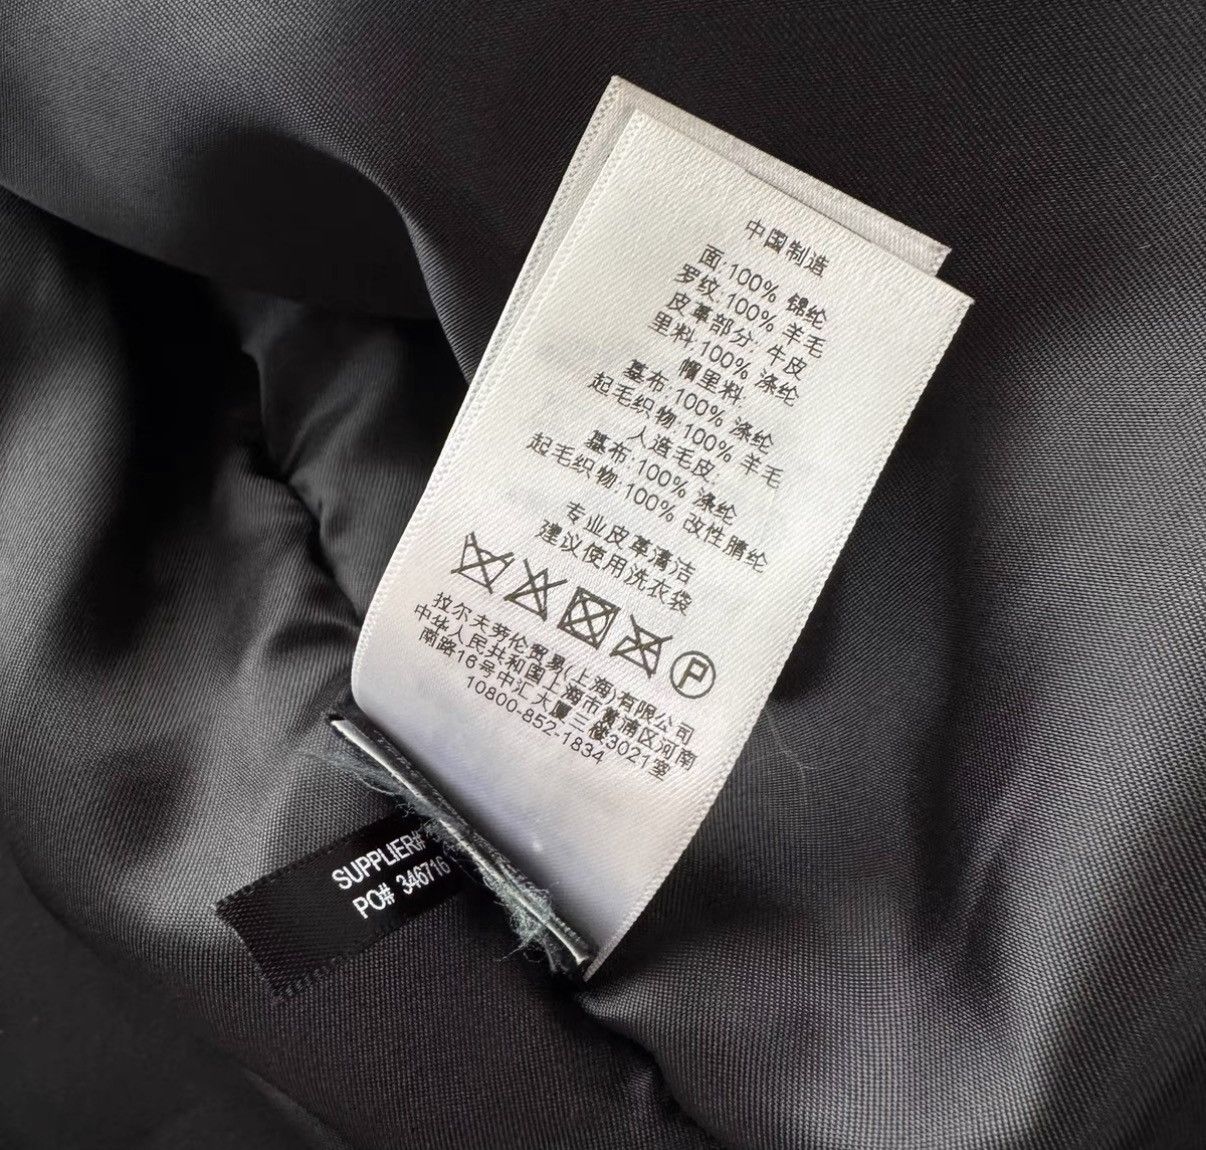 中国制造
面:100% 锦纶
罗纹:100% 羊毛
皮革部分: 牛皮
里料:100% 涤纶
帽里料:
基布:100% 涤纶
起毛织物:100% 羊毛
人造毛皮:
基布:100% 涤纶
起毛织物:100% 改性腈纶
专业皮革清洁
建议使用洗衣袋
P
拉尔夫劳伦贸易(上海)有限公司
中华人民共和国上海市黄浦区河南
南路16号中汇大厦三楼3021室
10800-852-1834
SUPPLIER#
PO# 346716